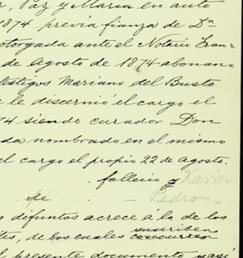 , Paz y Maria en auto
1874. previa fianza de Dn
otorgada ante el Notario Fran-
de Agosto de 1874 abonan-
testigos Mariano del Busto
le discernió el cargo el
74 siendo curador Don
da nombrado en el mismo
el cargo el propio 22 de agosto.
fallecio y Xavier
de Pedro
s defintos acrece a la de los
tes, de los cuales suscriben
el presente documento y asi